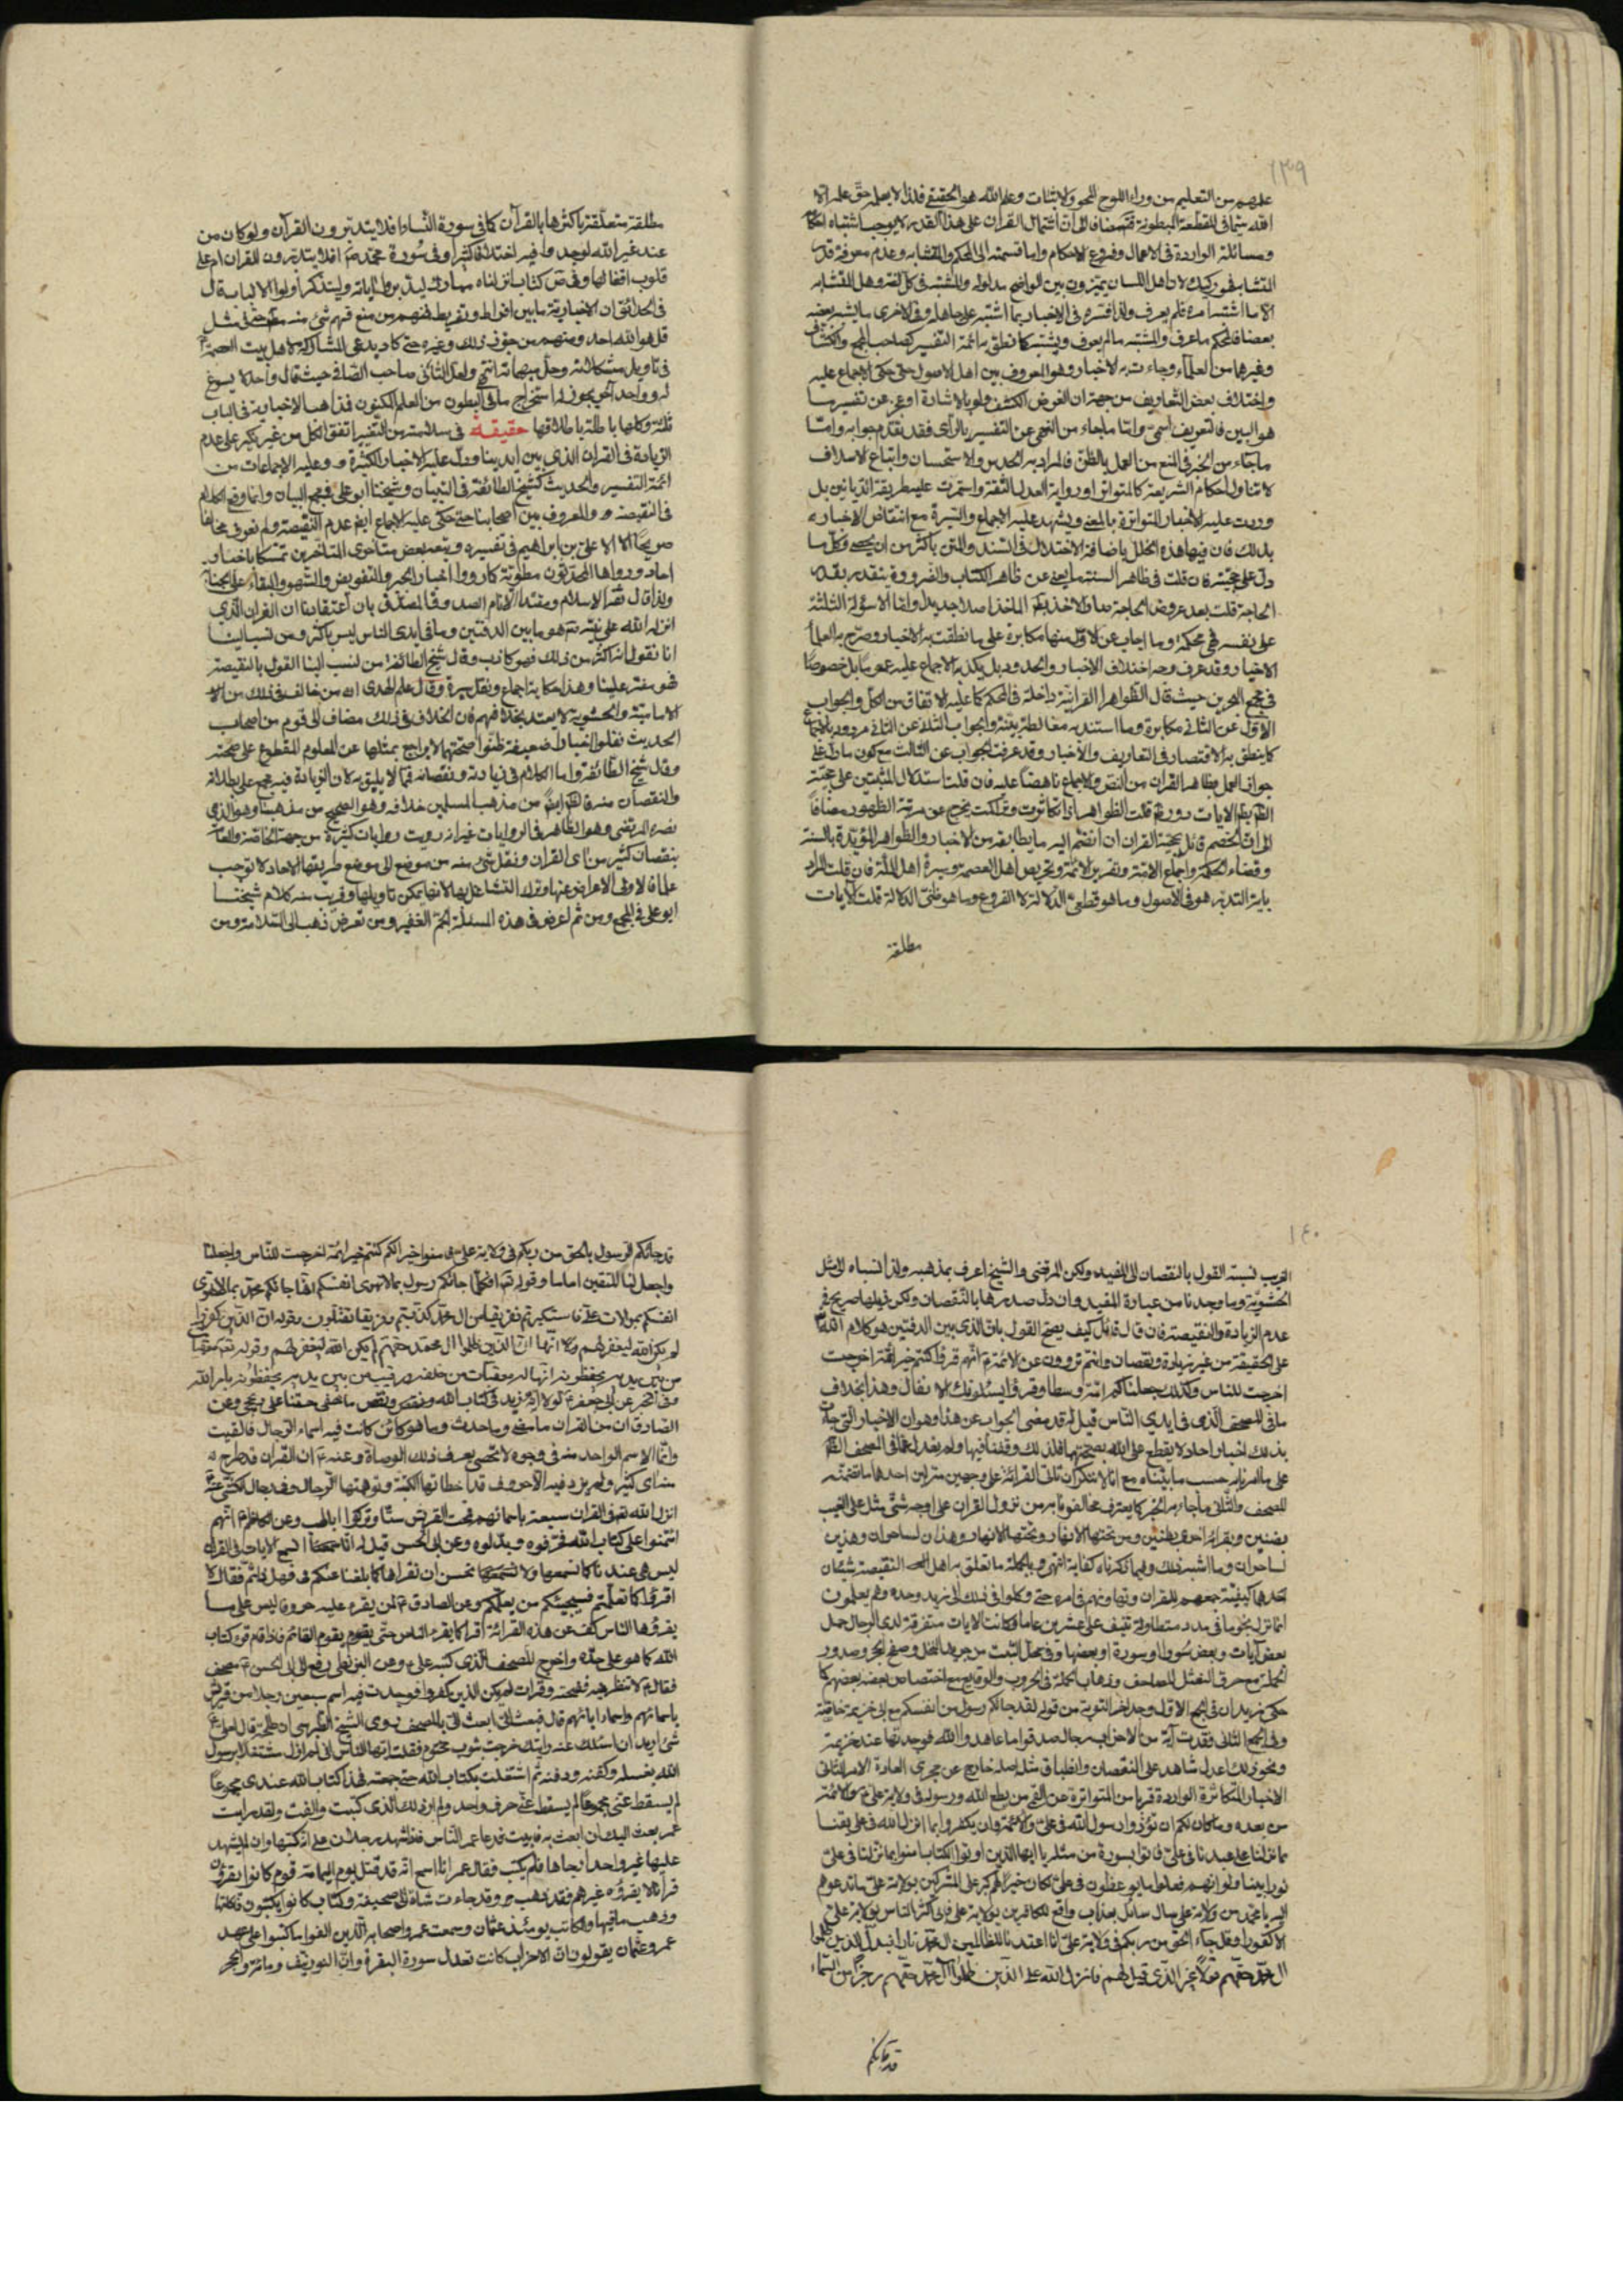 ١٣٩
عليهم من التعليم من وراء اللوح المحو والاثبات وعلم الله هو الحقيقي فلذا لا يعلم حق علمه الا
الله سيما في القطعة المبطونة مضافا الى ان اشتمال القران على هذا القدر لا يوجب اشتباه احكام
ومسائله الواردة في الاعمال وفروع الاحكام واما قسمته الى المحكم والمتشابه وعدم معرفة قدر
المتشابه فهو ركيك لان اهل اللسان يميزون بين الواضح مدلوله والمشتبه في كل لغة وهل المتشابه
الا ما اشتبه امره فلم يعرف ولذا فسره في الاخبار بما اشتبه على جاهله وفي الاخرى ما يشبه بعضه
بعضا فالمحكم ما عرف والمشتبه ما لم يعرف ويشتبه كما نطق به ائمة التفسير كصاحب المجمع والكشاف
وغيرهما من العلماء وجاءت به الاخبار وهو المعروف بين اهل الاصول حتى حكى الاجماع عليه
واختلاف بعض التعاريف من جهة ان الغرض الكشف ولو بالاشارة او عن تفسير ما
هو البين فالتعريف اسمي واما ما جاء من النهي عن التفسير بالراي فقد تقدم جوابه واما
ما جاء من الخبر في المنع من العمل بالظن فالمراد به الحدس والاستحسان واتباع الاسلاف
لا تناول احكام الشريعة كالمتواتر او رواية العدل الثقة واستمرت عليه طريقة الديانين بل
ووردت عليه الاخبار المتواترة بالمعنى ويشهد عليه الاجماع والسيرة مع انتقاض الاخبار
بذلك فان فيها هذه الخلل باضافة الاختلال في السند والمتن باكثر من ان يحصى وكل ما
دل على حجيته فان قلت في ظاهر السنة ما يغني عن ظاهر الكتاب والضرورة يتقدر بقدر
الحاجة قلت بعد عروض الحاجة صار الاخذ بكلا الماخذ اصلا جديدا واما الاسولة الثلثة
على نفسه في محكمه وما اجاب عن الاول منها مكابرة على ما نطقت به الاخبار وصرح به العلماء
الاخيار وقد عرف وجه اختلاف الاخبار والحدود بل يكذبه الاجماع عليه عموما بل خصوصا
في مجمع البحرين حيث قال الظواهر القرانية داخلة في المحكم كما عليه الاتفاق من الكل والجواب
الاول عن الثاني مكابرة وما استند به مغالطة بينة والجواب الثلاث عن الثاني مردود بالاجماع
كما ينطق به الاقتصار في التعاريف والاخبار وقد عرفت الجواب عن الثالث مع كون ما دل على
جواز العمل بظاهر القران من النص والاجماع ناهضا عليه فان قلت استدلال المثبتين على حجية
الظن بظاهر الايات دور قلت الظواهر اذا تكاثرت وتماكنت يخرج عن مرتبة الظهور مضافا
الى ان الخصم قائل بحجية القران ان انضم اليه ما يطابقه من الاخبار والظواهر المؤيدة بالسنة
وقضاء الحكمة واجماع الامة وتقرير الائمة وتحريص اهل العصمة وسيرة اهل الملة فان قلت المراد
باية التدبر هو في الاصول وما هو قطعي الدلالة لا الفروع وما هو ظني الدلالة قلت الايات
مطلقة
مطلقة متعلقة باكثرها بالقرآن كما في سورة النساء افلا يتدبرون القرآن ولو كان من
عند غير الله لوجدوا فيه اختلافا كثيرا وفي سورة محمد ص افلا يتدبرون القران ام على
قلوب اقفالها وفي ص كتاب انزلناه مبارك ليدبروا اياته وليتذكر اولوا الالباب قال
في الحدائق ان الاخبارية ما بين افراط وتفريط فمنهم من منع فهم شئ منه حتى مثل
قل هو الله احد ومنهم من جوز ذلك وغيره حتى كاد يدعي المشاركة لاهل بيت العصمة
في تاويل مشكلاته وحل مبهماته انتهى ولعل الثاني صاحب الصافي حيث قال واحد لا يسوغ
له وواحد آخر يجوز له استخراج ما في البطون من العلم المكنون فمذاهب الاخبارية في الباب
ثلثة وكلها باطلة باطلاقها حقيقة في سلامته من التغيير اتفق الكل من غير نكير على عدم
الزيادة في القران الذي بين ايدينا ودل عليه الاخبار الكثيرة وعليه الاجماعات من
ائمة التفسير والحديث كشيخ الطائفة في التبيان وشيخنا ابو علي في مجمع البيان وانما وقع الكلام
في النقيصة والمعروف بين اصحابنا حتى حكى عليه الاجماع ايضا عدم النقيصة ولم نعرف مخالفا
صريحا الا علي بن ابراهيم في تفسيره وتبعه بعض متاخري المتاخرين تمسكا باخبار
احاد ورواها المحدثون مطوية كما رووا اخبار الجبر والتفويض والسهو والبقاء على الجنابة
ولذا قال ثقة الاسلام ومقتدا الانام الصدوق المصدق بان اعتقادنا ان القران الذي
انزله الله على نبيه هو ما بين الدفتين وما في ايدي الناس ليس باكثر ومن نسب الينا
انا نقول انه اكثر من ذلك فهو كاذب وقال شيخ الطائفة من نسب الينا القول بالنقيصة
فهو مفتر علينا وهذا حكاية اجماع ونقل سيرة وقال علم الهدى ان من خالف في ذلك من
الامامية والحشوية لا يعتد بخلافهم فان الخلاف في ذلك مضاف الى قوم من اصحاب
الحديث نقلوا اخبارا ضعيفة ظنوا صحتها لا يراجع بمثلها عن المعلوم المقطوع على صحته
وقال شيخ الطائفة واما الكلام في زيادته ونقصانه فمما لا يليق به لان الزيادة فيه مجمع على بطلانه
والنقصان منه فالظاهر ايضا من مذهب المسلمين خلافه وهو الصحيح من مذهبنا وهو الذي
نصره المرتضى وهو الظاهر في الروايات غير انه رويت روايات كثيرة من جهة الخاصة والعامة
بنقصان كثير من اي القران ونقل شئ منه من موضع الى موضع طريقها الاحاد لا توجب
علما فالاولى الاعراض عنها وترك التشاغل بها لانها يمكن تاويلها وقريب منه كلام شيخنا
ابو علي في المجمع ومن ثم اعرض في هذه المسئلة الجم الغفير ومن تعرض ذهب الى السلامة ومن
١٤٠
الغريب نسبة القول بالنقصان الى المفيد ولكن المرتضى والشيخ اعرف بمذهبه ولذا نسباه الى مثل
الحشوية وما وجدنا من عبارة المفيد وان دل صدرها بالنقصان ولكن ذيلها صريح في
عدم الزيادة والنقيصة فان قال قائل كيف يصح القول بان الذي بين الدفتين هو كلام الله تع
على الحقيقة من غير زيادة ونقصان وانتم تروون عن الائمة ع انهم قرؤا كنتم خير ائمة اخرجت
اخرجت للناس وكذلك جعلناكم ائمة وسطا وقرؤا يسئلونك الانفال وهذا بخلاف
ما في المصحف الذي في ايدي الناس قيل له قد مضى الجواب عن هذا وهو ان الاخبار التي جاءت
بذلك اخبار احاد لا يقطع على الله بصحتها فلذلك وقفنا فيها ولم نعدل عما في المصحف الظاهر
على ما امرنا به حسب ما بيناه مع انا لا ننكر ان تاتي القرائة على وجهين منزلين احدهما ما تضمنه
المصحف والثاني ما جاء به الخبر كما يعترف مخالفونا به من نزول القران على اوجه شتى مثل على الغيب
بضنين ويقرء اخرى بظنين ومن تحتها الانهار وتحتها الانهار وهذان لساحران وهذين
لساحران وما اشبه ذلك وفيما ذكرناه كفاية انتهى وبالجملة ما تعلق به اهل النقيصة شيئان
احدهما كيفية جمعهم للقران وتهاونهم في امره حتى وكلوا في ذلك الى زيد وحده وهم يعلمون
انما نزل نجوما في مدد متطاولة تنيف على عشرين عاما وكانت الايات متفرقة لدى الرجال جمل
بعض آيات وبعض سورا او سورة او بعضها وفي محل الثبت من جريد النخل وصفح الحجر وصدور
الحملة مع حرق العثمان المصاحف وذهاب الحملة في الحروب والوقايع مع اختصاص بعضه ببعضهم كما
حكى زيد ان في الجمع الاول وجد اخر التوبة من قوله لقد جاءكم رسول من انفسكم مع ابي خزيمة خاصة
وفي الجمع الثاني فقدت آية من الاحزاب رجال صدقوا ما عاهدوا الله فوجدتها عند خزيمة
ونحو ذلك اعدل شاهد على النقصان وانطباق مثله اصله خارج عن مجرى العادة الامر الثاني
الاخبار المتكاثرة الواردة قريبا من المتواترة عن القمي من يطع الله ورسوله في ولاية علي ع والائمة
من بعده وما كان لكم ان تؤذوا رسول الله في علي والائمة وان يكفروا بما انزل الله في علي بغيا
مما نزلنا على عبدنا في علي فاتوا بسورة من مثله يا ايها الذين اوتوا الكتاب امنوا بما نزلنا في علي
نورا مبينا ولو انهم فعلوا ما يوعظون في علي لكان خيرا لهم كبر على المشركين بولاية علي ما تدعوهم
اليه يا محمد من ولاية علي سال سائل بعذاب واقع للكافرين بولاية علي فابى اكثر الناس بولاية علي
الا كفورا وقل جاء الحق من ربكم في ولاية علي انا اعتدنا للظالمين ال محمد نارا فبدل الذين ظلموا
ال محمد حقهم قولا غير الذي قيل لهم فانزل الله على الذين ظلموا آل محمد حقهم رجزا من السماء
قد جائكم
قد جائكم الرسول بالحق من ربكم في ولاية علي فامنوا خيرا لكم كنتم خير ائمة اخرجت للناس واجعلنا
واجعل لنا للمتقين اماما وقوله تع افكلما جائكم رسول بما لا تهوى انفسكم افما جائكم محمد بما لا تهوى
انفسكم بموالات علي فاستكبرتم ففريقا من ال محمد كذبتم وفريقا تقتلون وقوله ان الذين كفروا
لم يكن الله ليغفر لهم وانها ان الذين ظلموا ال محمد حقهم لم يكن الله ليغفر لهم وقوله تع له معقبات
من بين يديه يحفظونه انها له معقبات من خلفه ورقيب من بين يديه يحفظونه بامر الله
وفي اخر عن ابي جعفر ع لولا انه زيد في كتاب الله ونقص ما خفي حقنا على ذي حجى وعن
الصادق ان من القران ما مضى وما حدث وما هو كائن كانت فيه اسماء الرجال فالقيت
وانما الاسم الواحد منه في وجوه لا تحصى يعرف ذلك الوصاة وعنه ع ان القران قد طرح
منه اي كثير ولم يزد فيه الا حروف قد اخطات بها الكتبة وتوهمتها الرجال
انزل الله في القران سبعة باسمائهم فمحت القريش ستا وتركوا ابا لهب وعن الكاظم ع انهم
ائتمنوا على كتاب الله فحرفوه وبدلوه وعن ابي الحسن قيل له انا نسمع الايات في القران
ليس هي عندنا كما نسمعها ولا نحسن ان نقراها كما بلغنا عنكم فهل ناثم فقال لا
اقرؤا كما تعلمتم فسيجيئكم من يعلمكم وعن الصادق ع لمن يقرء عليه حروفا ليس على ما
يقرؤها الناس كف عن هذه القرائة اقرا كما يقرء الناس حتى يقوم القائم فاذا قام قرء كتاب
الله كما هو على حده واخرج المصحف الذي كتبه علي ع وعن البزنطي دفع الي ابي الحسن ع مصحف
فقال لا تنظر فيه ففتحته وقرات لم يكن الذين كفروا فوجدت فيه اسم سبعين رجلا من قريش
باسمائهم واسماء ابائهم قال فبعث الي ابعث الي بالمصحف روى الشيخ الطبرسي ان طلحة قال لعلي ع
شئ اريد ان اسئلك عنه رايتك خرجت بثوب مختوم فقلت ايها الناس اني لم ازل مشتغلا برسول
الله بغسله وكفنه ودفنه ثم اشتغلت بكتاب الله حتى جمعته فهذا كتاب الله عندي مجموعا
لم يسقط عني حرف واحد ولم ار ذلك الذي كتبت والفت ولقد رايت
عمر بعث اليك ان ابعث به فابيت فدعا عمر الناس فاذا شهد رجلان على اية كتبها وان لم يشهد
عليها غير واحد ارجاها فلم يكتب فقال عمر انا اسمع انه قد قتل يوم اليمامة قوم كانوا يقرؤن
قرآنا لا يقرؤه غيرهم فقد ذهب وقد جاءت شاة الى صحيفة وكتاب كانوا يكتبون فاكلتها
وذهب ما فيها والكاتب يومئذ عثمان وسمعت عمر واصحابه الذين الفوا ما كتبوا على عهد
عمر وعثمان يقولون ان الاحزاب كانت تعدل سورة البقرة وان النور نيف ومائة والحجر